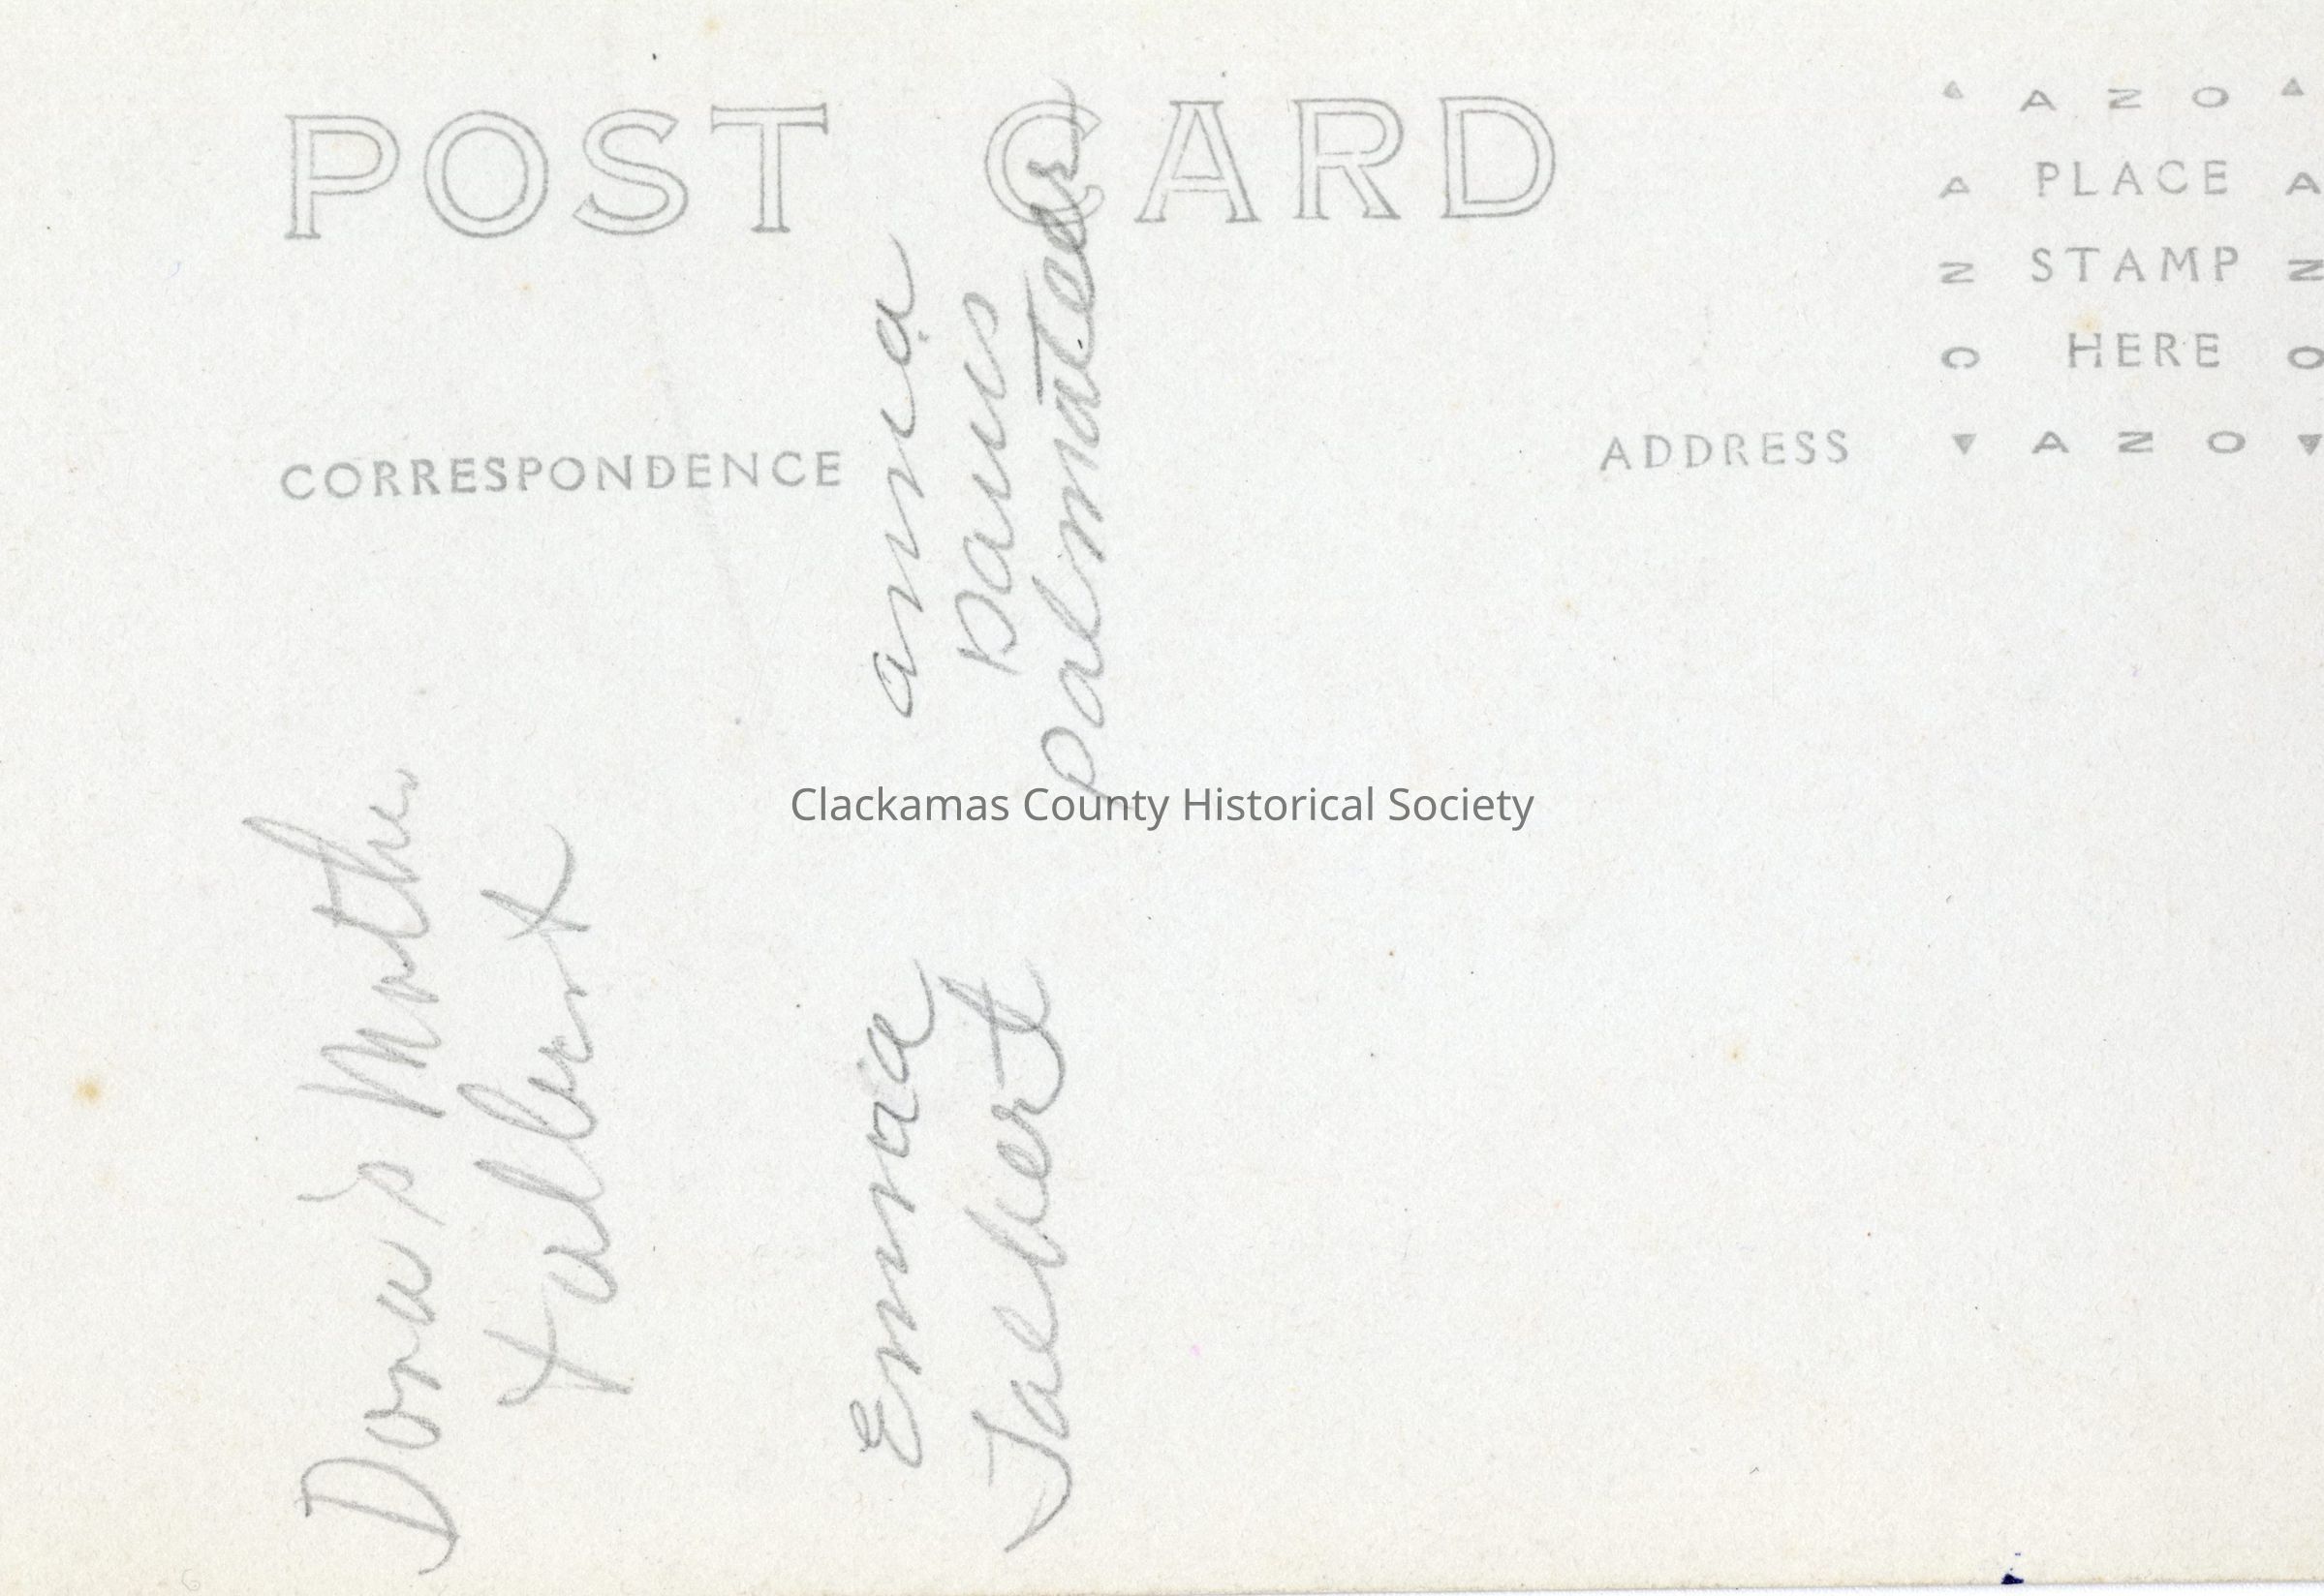 POST CARD
AZO
PLACE
STAMP
HERE
AZO
AZO
AZO
CORRESPONDENCE
ADDRESS
Dora's Mother
Talbert
Emma
Talbert
anna
Davis
palmateer
Clackamas County Historical Society